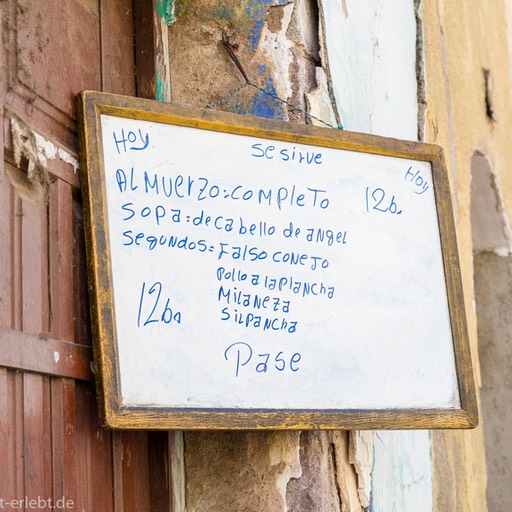 Hoy
se sirve
Hoy
ALMUERZO:COMPLETO 12b.
Sopa:de cabello de angel
Segundos: Falso conejo
Pollo a la plancha
Milaneza
Silpancha
12bs
Pase
t-erlebt.de